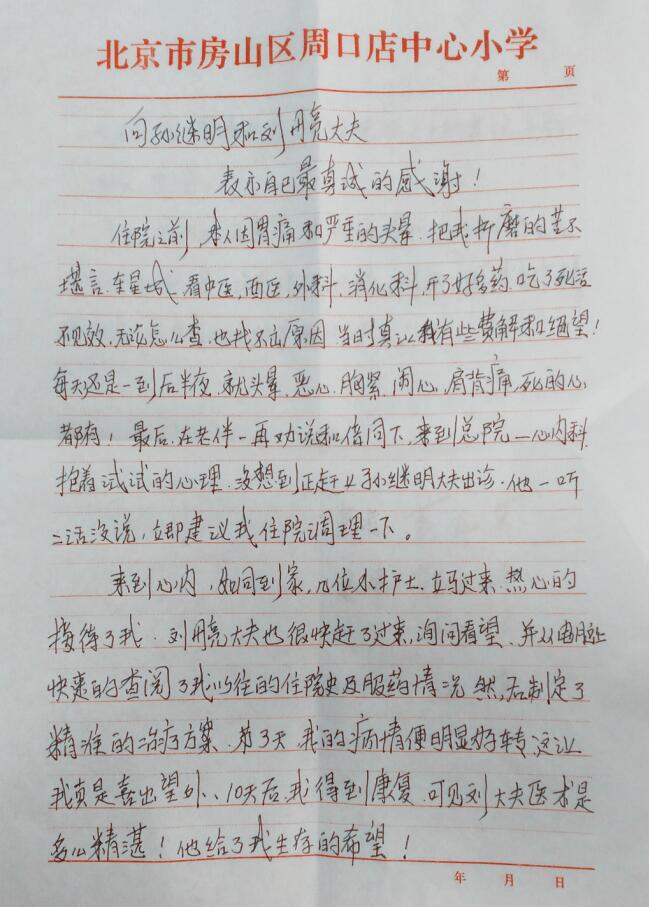 北京市房山区周口店中心小学
第 页
向孙继明和刘丹亮大夫
表示自己最真诚的感谢！
住院之前，本人因胃痛和严重的头晕，把我折磨的苦不
堪言，看中医，西医，外科，消化科，开了好多药，吃了死活
不见效，无论怎么查，也找不出原因，当时真让我有些费解和绝望！
每天还是一到后半夜，就头晕，恶心，胸紧，闹心，肩背痛，死的心
都有！最后，在老伴一再劝说和陪同下，来到总院一心内科，
抱着试试的心理，没想到正赶上孙继明大夫出诊，他一听
二话没说，立即建议我住院调理一下。
来到心内，如同到家，几位小护士，立马过来，热心的
接待了我，刘丹亮大夫也很快赶了过来，询问看望，并从电脑上
快速的查阅了我以往的住院史及服药情况，然后制定了
精准的治疗方案，第3天，我的病情便明显好转，这让
我真是喜出望外、10天后，我得到康复，可见刘大夫医术是
多么精湛！他给了我生存的希望！
年 月 日